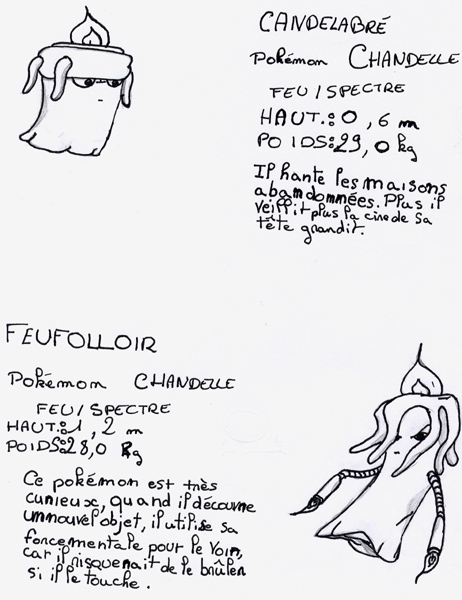 CANDELABRÉ
Pokémon CHANDELLE
FEU/SPECTRE
HAUT.:0,6 m
POIDS:29,0 kg
Il hante les maisons
abamdommées. Plus il
veillit plus la cire de sa
tête grandit.
FEUFOLLOIR
Pokémon CHANDELLE
FEU/SPECTRE
HAUT:1,2 m
POIDS:28,0 kg
Ce pokémon est très
curieux, quand il découvre
un nouvel objet, il utilise sa
force mentale pour le voir,
car il risquerait de le brûler
si il le touche.